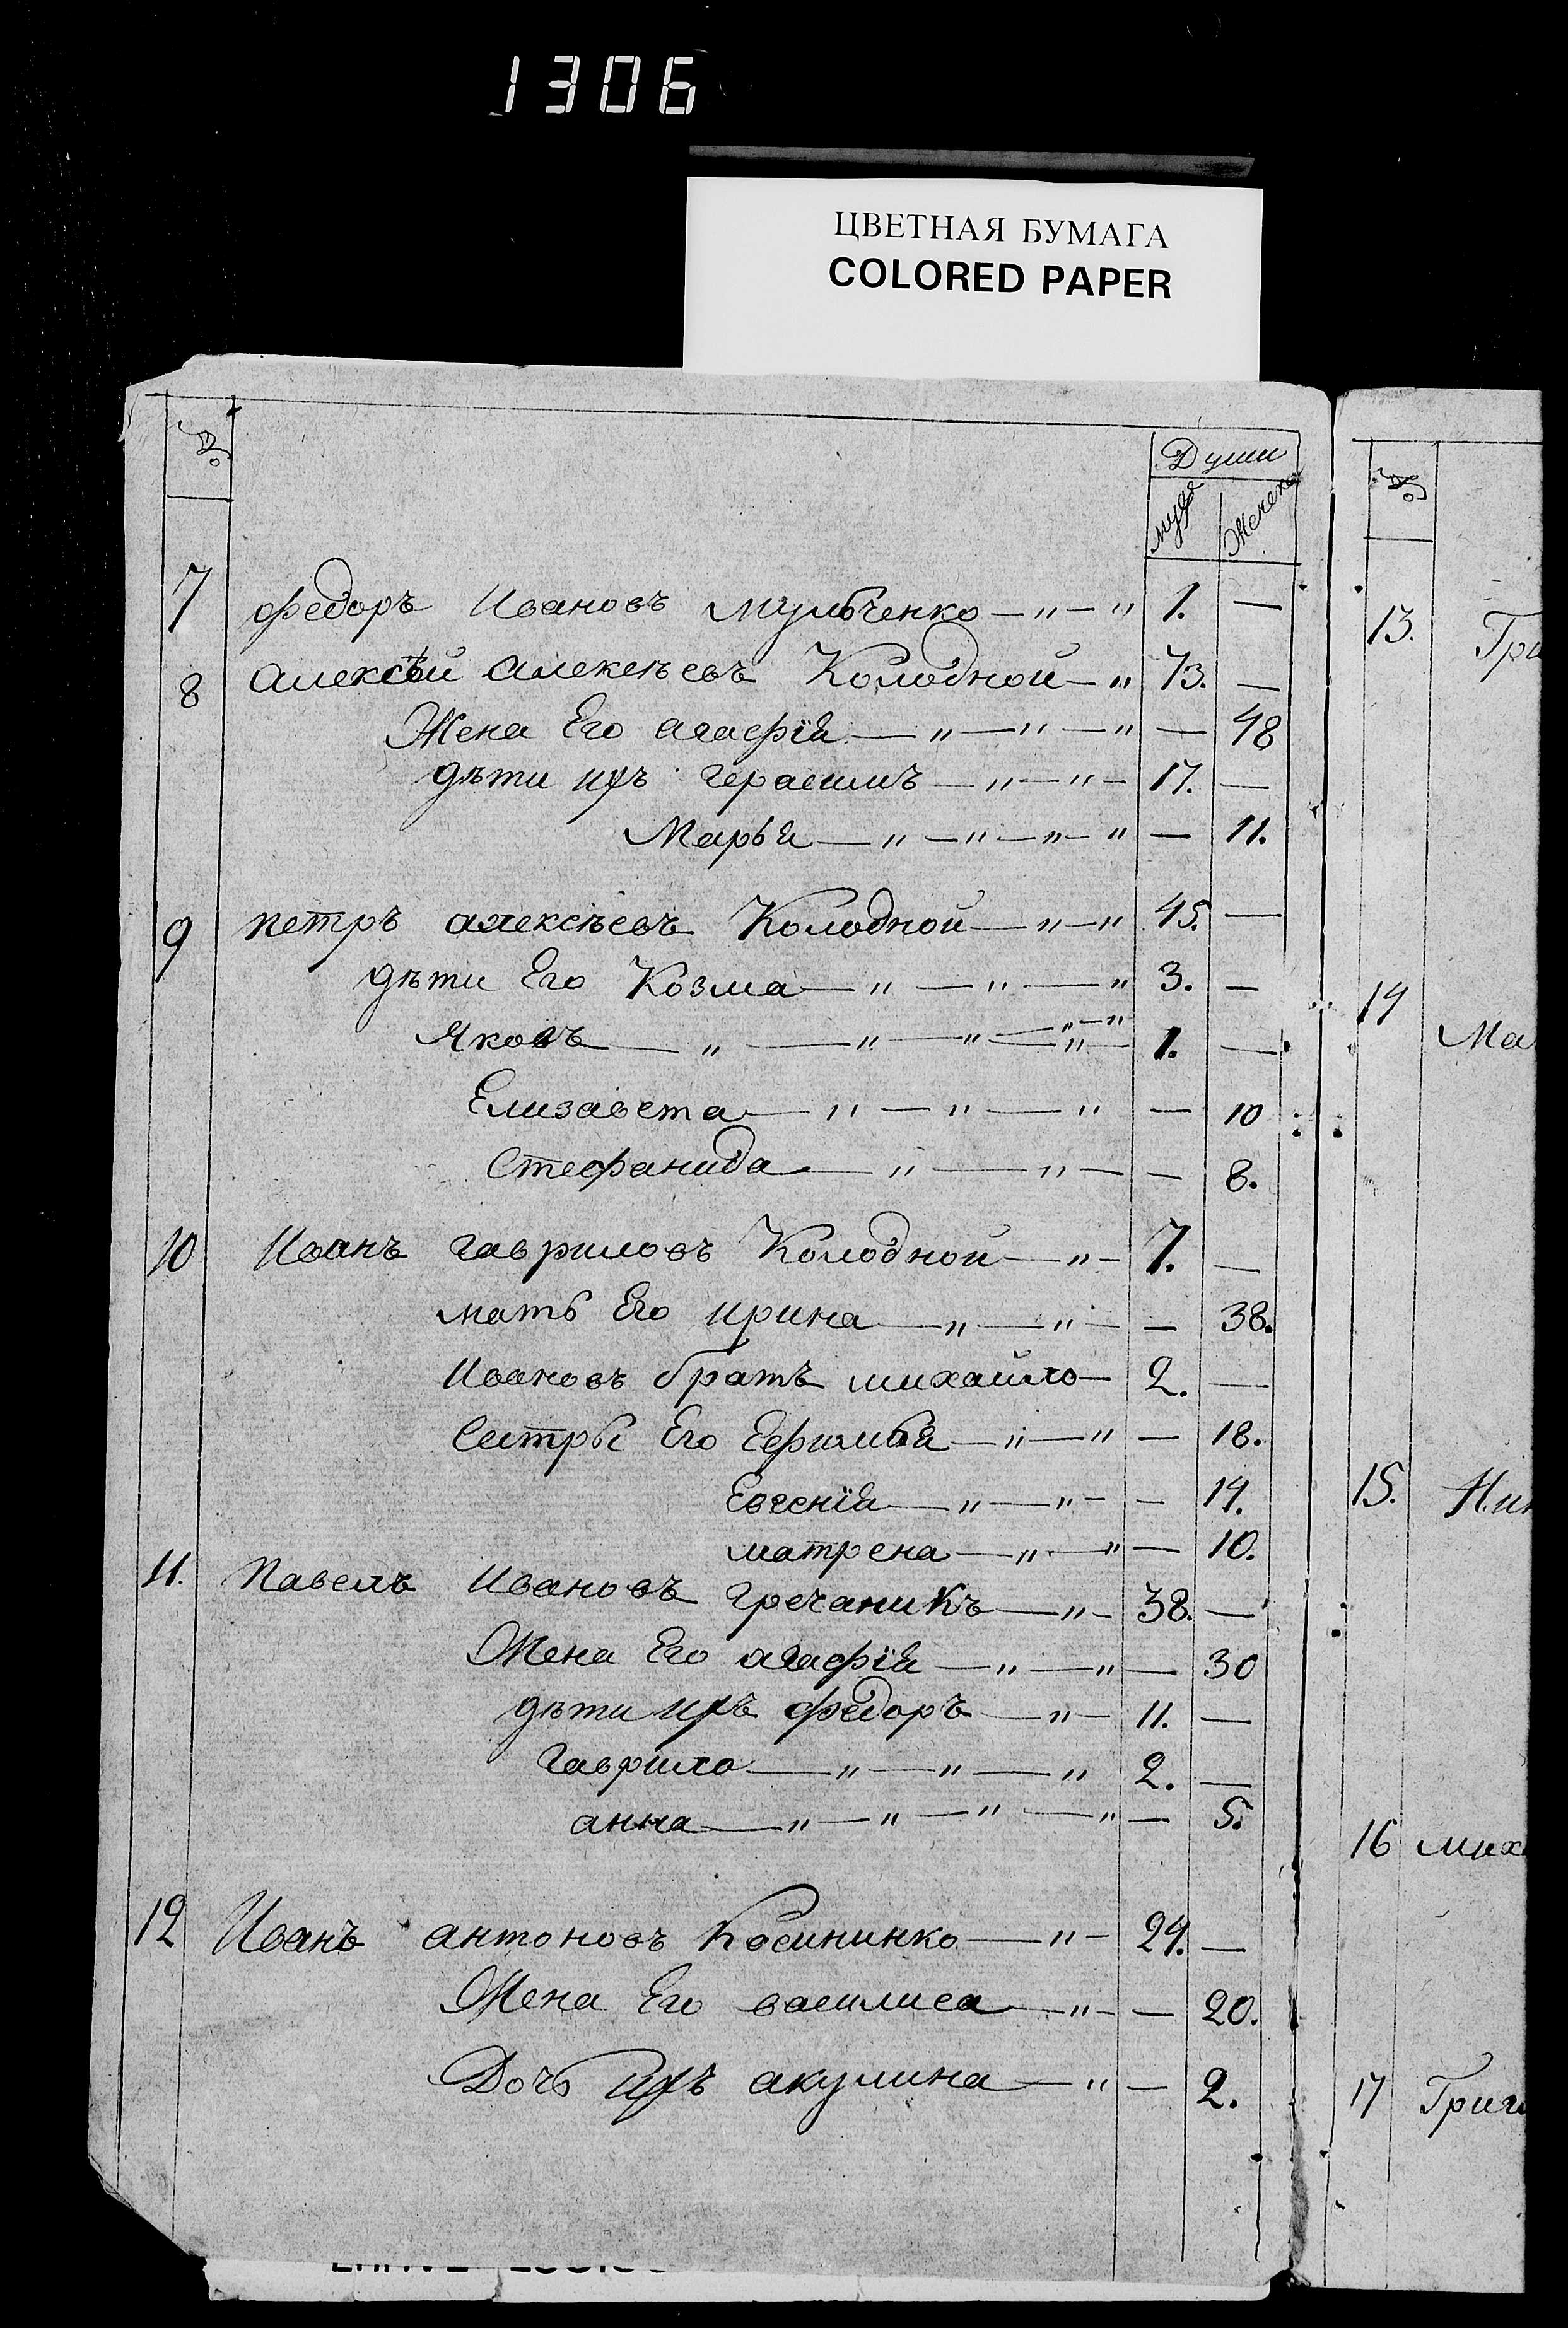 1306
ЦВЕТНАЯ БУМАГА
COLORED PAPER
№
Души
муж Женск
7 Федоръ Ивановъ Мульченко — " — " 1. —
8 Алексѣй Алексѣевъ Колодной — " 73. —
Жена Его агафія — " — " — " — 48
дѣти ихъ герасимъ — " — " — 17. —
Марья — " — " — " — " — 11.
9 петръ алексѣевъ Колодной — " — " 45. —
дѣти Его Козма — " — " — " 3. —
Яковъ — " — " — " — " — 1. —
Елизавета — " — " — " — 10
Стефанида — " — " — — 8.
10 Иванъ гавриловъ Колодной — " — 7. —
мать Его ирина — " — " — — 38.
Ивановъ братъ михайло — 2. —
Сестры Его Ефимья — " — " — 18.
Евгенія — " — " — — 14.
матрена — " — " — 10.
11. Павелъ Ивановъ гречаникъ — " — 38. —
Жена Его агафія — " — " — 30
дѣти ихъ федоръ — " — 11. —
гаврило — " — " — " 2. —
анна — " — " — " — " — 5.
12 Иванъ антоновъ — " — 24. —
Жена Его василиса — " — — 20.
Дочь ихъ акулина — " — 2.
№
13. Гри
14 Ма
15. Ник
16 мих
17 Григ